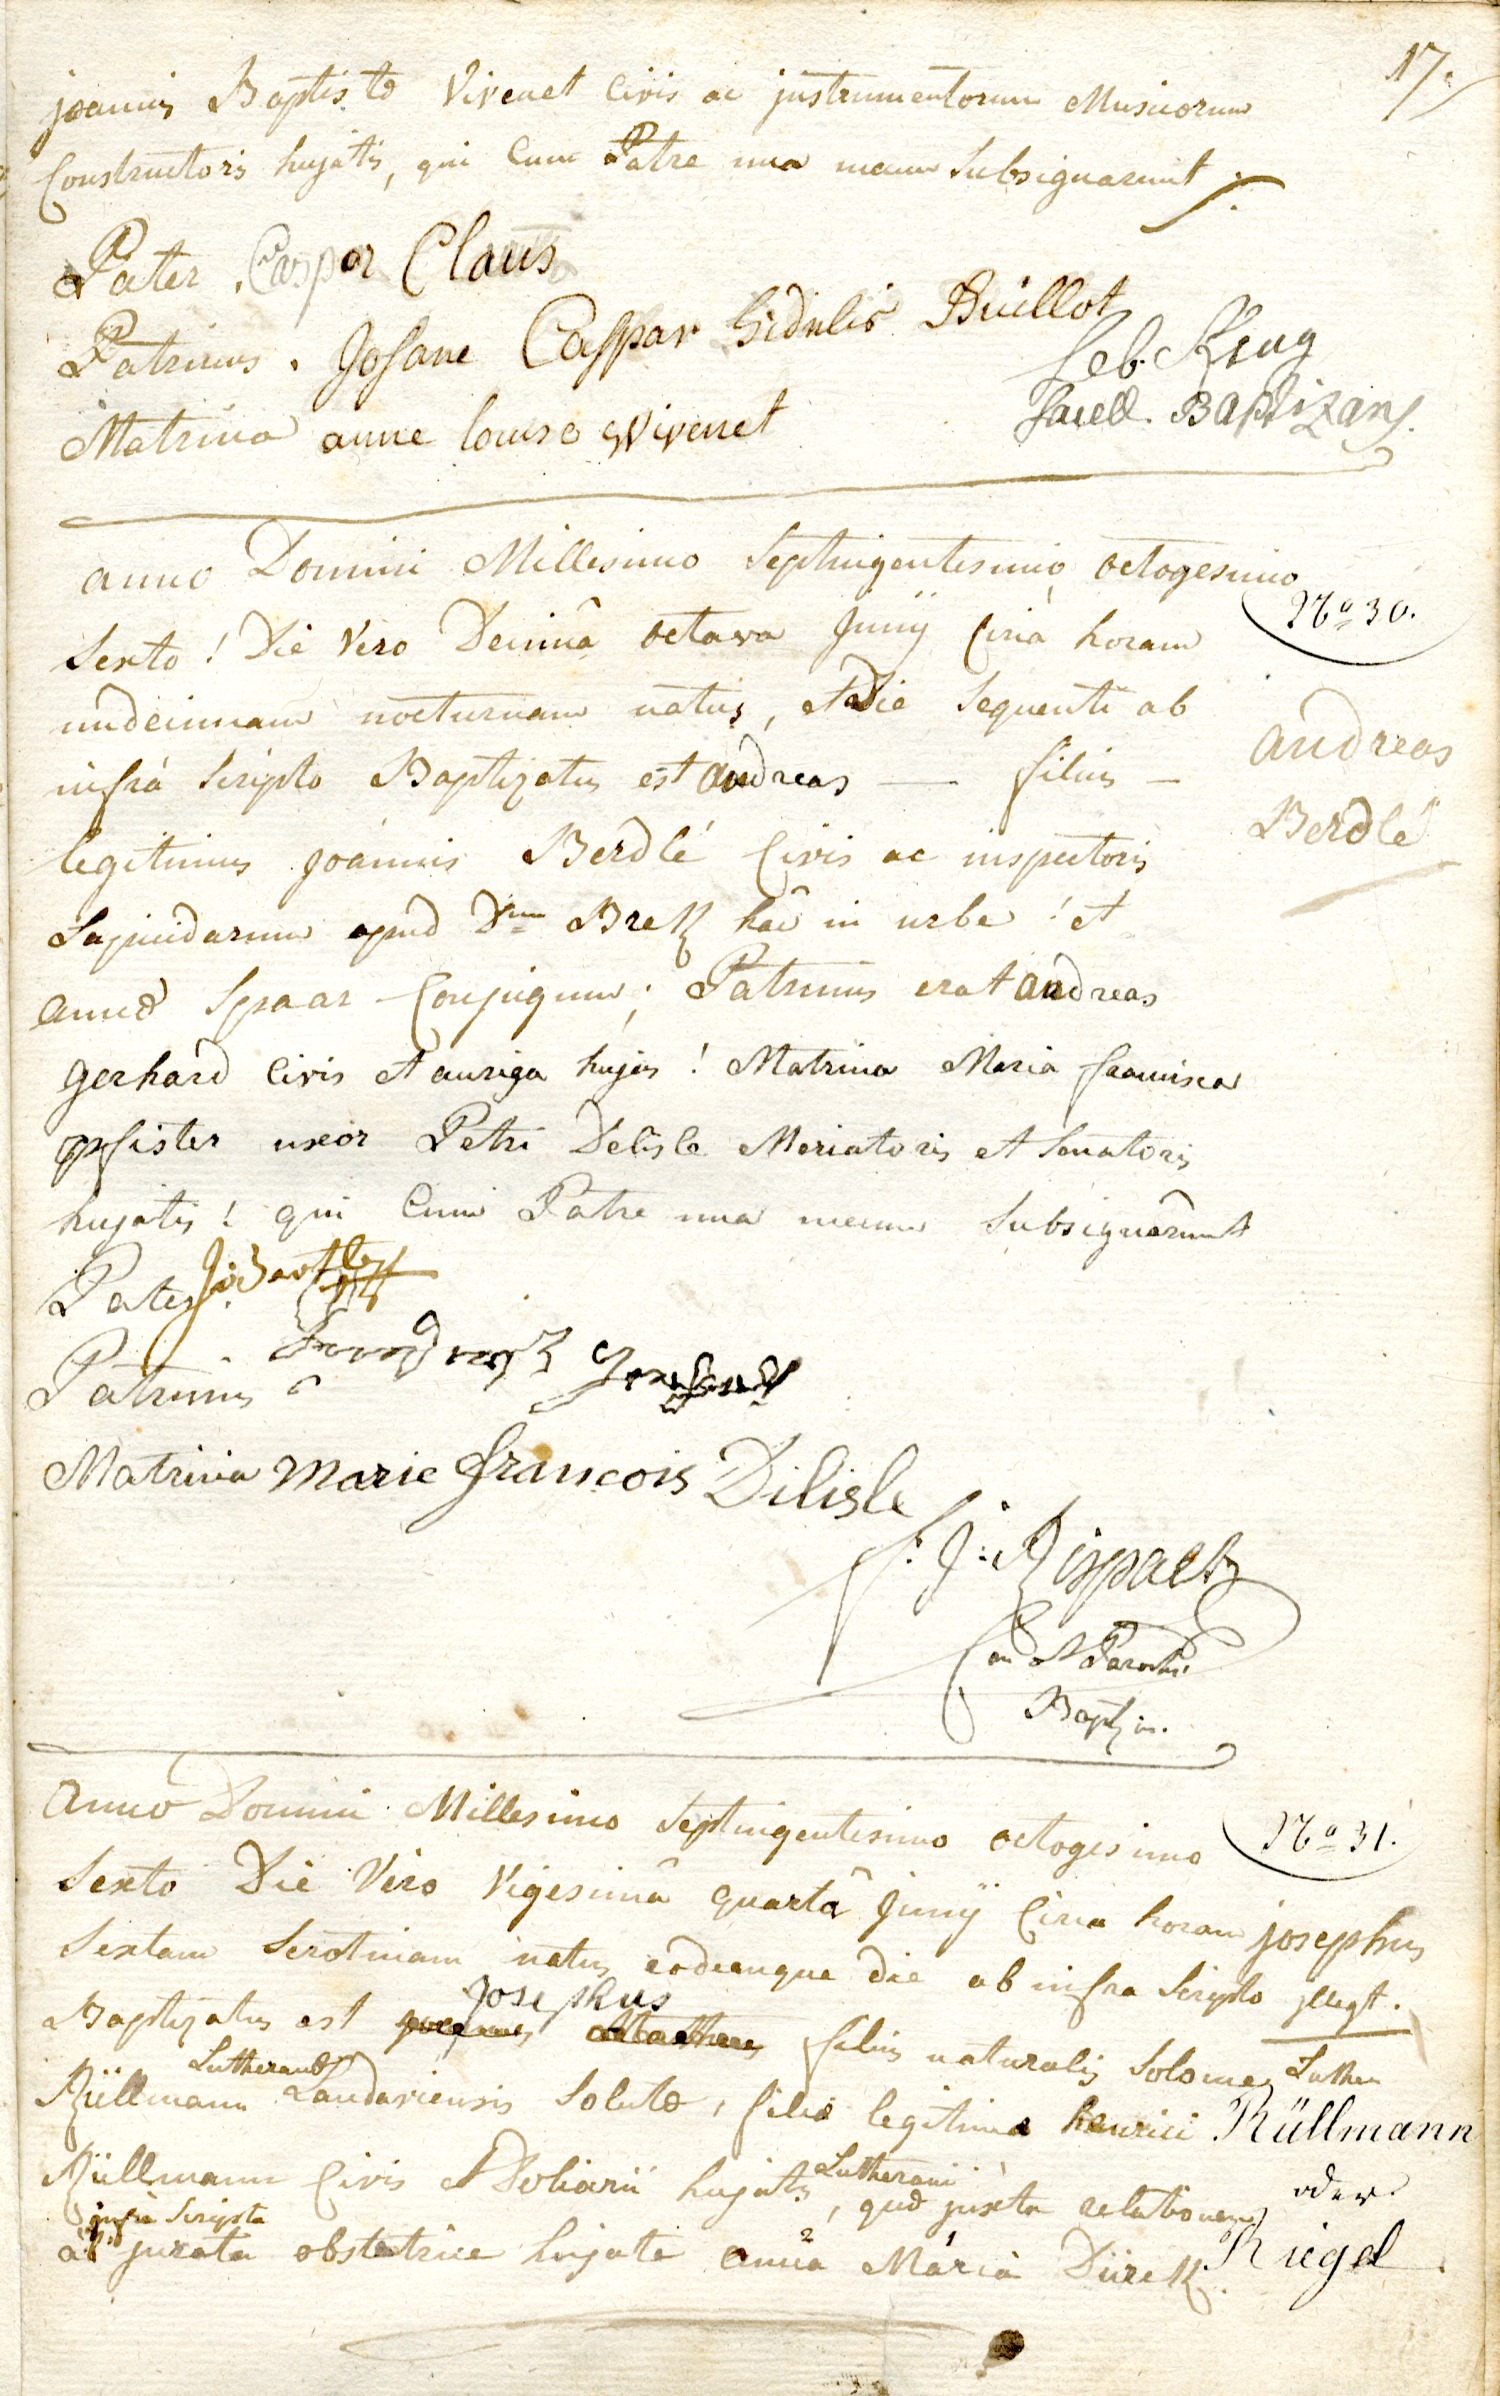 17.
joannis Baptistæ Vivenet Civis ac jnstrumentorum Musicorum
Constructoris hujatis, qui Cum Patre una mecum Subsignarunt
Pater. Caspar Claus
Patrinus. Johane Caspar Fidelis Buillot
Seb. Krug
Matrina anne louise Wivenet
Sacell. Baptizans.
anno Domini Millesimo Septingentesimo octogesimo
No 30.
Sexto! Die Vero Decimâ octava Junÿ Circà horam
undecimam nocturnam natus, et die Sequenti ab
andreas
infrà Scripto Baptizatus est andreas — filius —
Berdlé
legitimus joánnis Berdlé Civis ac inspectoris
apud Dnum Bretz hâc in urbe! et
annæ Spaar Conjugum; Patrinus erat andreas
gerhard Civis et auriga hujas! Matrina Maria francisca
pfister uxor Petri Delisle Mercatoris et Senatoris
hujatis! qui Cum Patre una mecum Subsignârunt
Pater
Patrinus
Matrina Marie francois Dilisle
Can et Parochus
Baptizns.
Anno Domini Millesimo Septingentesimo octogesimo
No 31.
Sexto Die Vero Vigesimâ quartâ Junÿ Circa horam
josephus
Sextam Serotinam natus eodemque die ab infra Scripto
jllegt.
Josephus
Baptizatus est filius naturalis Solomeæ
Luther
Lutheranæ
Rüllmann Landaviensis Solutæ, filiæ legitimæ henrici
Rüllmann
Lutherani
Rüllmann Civis et Doliarii hujatis, quæ juxta relationem
oder
infrà Scripta
à jurata obstetrice hujate anna Mária Dürck
Riegel.